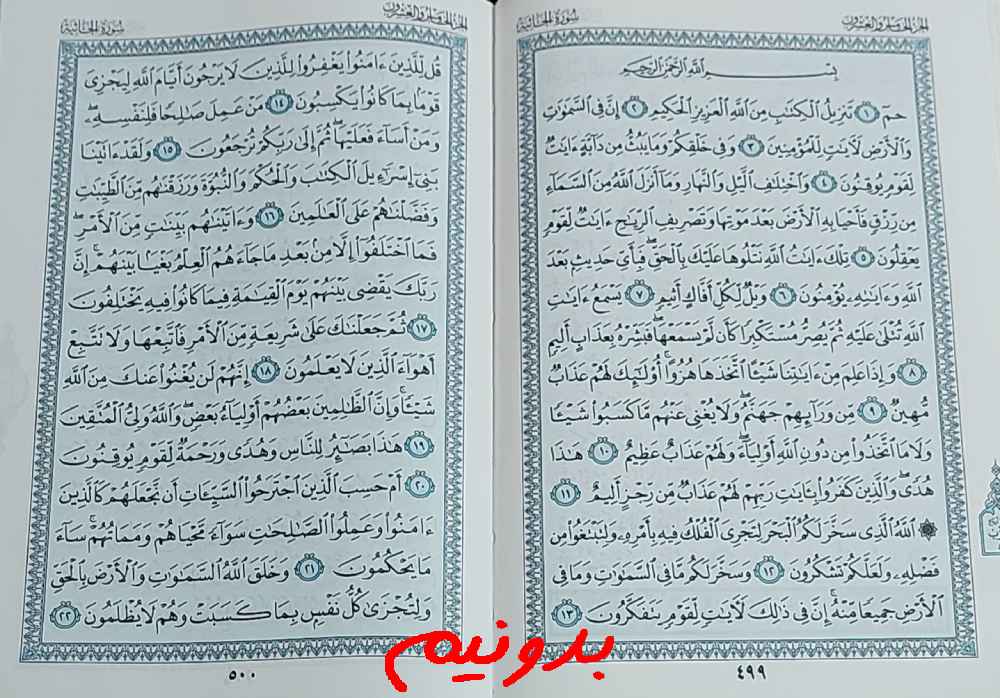 الجزء الخامس والعشرون
سورة الجاثية
بسم الله الرحمن الرحيم
حمٓ ١ تَنزِيلُ ٱلْكِتَٰبِ مِنَ ٱللَّهِ ٱلْعَزِيزِ ٱلْحَكِيمِ ٢ إِنَّ فِى ٱلسَّمَٰوَٰتِ
وَٱلْأَرْضِ لَءَايَٰتٍ لِّلْمُؤْمِنِينَ ٣ وَفِى خَلْقِكُمْ وَمَا يَبُثُّ مِن دَآبَّةٍ ءَايَٰتٌ
لِّقَوْمٍ يُوقِنُونَ ٤ وَٱخْتِلَٰفِ ٱلَّيْلِ وَٱلنَّهَارِ وَمَآ أَنزَلَ ٱللَّهُ مِنَ ٱلسَّمَآءِ
مِن رِّزْقٍ فَأَحْيَا بِهِ ٱلْأَرْضَ بَعْدَ مَوْتِهَا وَتَصْرِيفِ ٱلرِّيَٰحِ ءَايَٰتٌ لِّقَوْمٍ
يَعْقِلُونَ ٥ تِلْكَ ءَايَٰتُ ٱللَّهِ نَتْلُوهَا عَلَيْكَ بِٱلْحَقِّ ۖ فَبِأَىِّ حَدِيثٍۭ بَعْدَ
ٱللَّهِ وَءَايَٰتِهِۦ يُؤْمِنُونَ ٦ وَيْلٌ لِّكُلِّ أَفَّاكٍ أَثِيمٍ ٧ يَسْمَعُ ءَايَٰتِ
ٱللَّهِ تُتْلَىٰ عَلَيْهِ ثُمَّ يُصِرُّ مُسْتَكْبِرًا كَأَن لَّمْ يَسْمَعْهَا ۖ فَبَشِّرْهُ بِعَذَابٍ أَلِيمٍ
٨ وَإِذَا عَلِمَ مِنْ ءَايَٰتِنَا شَيْـًٔا ٱتَّخَذَهَا هُزُوًا ۚ أُو۟لَٰٓئِكَ لَهُمْ عَذَابٌ
مُّهِينٌ ٩ مِّن وَرَآئِهِمْ جَهَنَّمُ ۖ وَلَا يُغْنِى عَنْهُم مَّا كَسَبُوا۟ شَيْـًٔا
وَلَا مَا ٱتَّخَذُوا۟ مِن دُونِ ٱللَّهِ أَوْلِيَآءَ ۖ وَلَهُمْ عَذَابٌ عَظِيمٌ ١٠ هَٰذَا
هُدًى ۖ وَٱلَّذِينَ كَفَرُوا۟ بِـَٔايَٰتِ رَبِّهِمْ لَهُمْ عَذَابٌ مِّن رِّجْزٍ أَلِيمٌ ١١
۞ ٱللَّهُ ٱلَّذِى سَخَّرَ لَكُمُ ٱلْبَحْرَ لِتَجْرِىَ ٱلْفُلْكُ فِيهِ بِأَمْرِهِۦ وَلِتَبْتَغُوا۟ مِن
فَضْلِهِۦ وَلَعَلَّكُمْ تَشْكُرُونَ ١٢ وَسَخَّرَ لَكُم مَّا فِى ٱلسَّمَٰوَٰتِ وَمَا فِى
ٱلْأَرْضِ جَمِيعًا مِّنْهُ ۚ إِنَّ فِى ذَٰلِكَ لَءَايَٰتٍ لِّقَوْمٍ يَتَفَكَّرُونَ ١٣
٤٩٩
الجزء الخامس والعشرون
سورة الجاثية
قُل لِّلَّذِينَ ءَامَنُوا۟ يَغْفِرُوا۟ لِلَّذِينَ لَا يَرْجُونَ أَيَّامَ ٱللَّهِ لِيَجْزِىَ
قَوْمًۢا بِمَا كَانُوا۟ يَكْسِبُونَ ١٤ مَنْ عَمِلَ صَٰلِحًا فَلِنَفْسِهِۦ ۖ
وَمَنْ أَسَآءَ فَعَلَيْهَا ۖ ثُمَّ إِلَىٰ رَبِّكُمْ تُرْجَعُونَ ١٥ وَلَقَدْ ءَاتَيْنَا
بَنِىٓ إِسْرَٰٓءِيلَ ٱلْكِتَٰبَ وَٱلْحُكْمَ وَٱلنُّبُوَّةَ وَرَزَقْنَٰهُم مِّنَ ٱلطَّيِّبَٰتِ
وَفَضَّلْنَٰهُمْ عَلَى ٱلْعَٰلَمِينَ ١٦ وَءَاتَيْنَٰهُم بَيِّنَٰتٍ مِّنَ ٱلْأَمْرِ ۖ
فَمَا ٱخْتَلَفُوٓا۟ إِلَّا مِنۢ بَعْدِ مَا جَآءَهُمُ ٱلْعِلْمُ بَغْيًۢا بَيْنَهُمْ ۚ إِنَّ
رَبَّكَ يَقْضِى بَيْنَهُمْ يَوْمَ ٱلْقِيَٰمَةِ فِيمَا كَانُوا۟ فِيهِ يَخْتَلِفُونَ
١٧ ثُمَّ جَعَلْنَٰكَ عَلَىٰ شَرِيعَةٍ مِّنَ ٱلْأَمْرِ فَٱتَّبِعْهَا وَلَا تَتَّبِعْ
أَهْوَآءَ ٱلَّذِينَ لَا يَعْلَمُونَ ١٨ إِنَّهُمْ لَن يُغْنُوا۟ عَنكَ مِنَ ٱللَّهِ
شَيْـًٔا ۚ وَإِنَّ ٱلظَّٰلِمِينَ بَعْضُهُمْ أَوْلِيَآءُ بَعْضٍ ۖ وَٱللَّهُ وَلِىُّ ٱلْمُتَّقِينَ
١٩ هَٰذَا بَصَٰٓئِرُ لِلنَّاسِ وَهُدًى وَرَحْمَةٌ لِّقَوْمٍ يُوقِنُونَ
٢٠ أَمْ حَسِبَ ٱلَّذِينَ ٱجْتَرَحُوا۟ ٱلسَّيِّـَٔاتِ أَن نَّجْعَلَهُمْ كَٱلَّذِينَ
ءَامَنُوا۟ وَعَمِلُوا۟ ٱلصَّٰلِحَٰتِ سَوَآءً مَّحْيَاهُمْ وَمَمَاتُهُمْ ۚ سَآءَ
مَا يَحْكُمُونَ ٢١ وَخَلَقَ ٱللَّهُ ٱلسَّمَٰوَٰتِ وَٱلْأَرْضَ بِٱلْحَقِّ
وَلِتُجْزَىٰ كُلُّ نَفْسٍۭ بِمَا كَسَبَتْ وَهُمْ لَا يُظْلَمُونَ ٢٢
٥٠٠
بدونیم